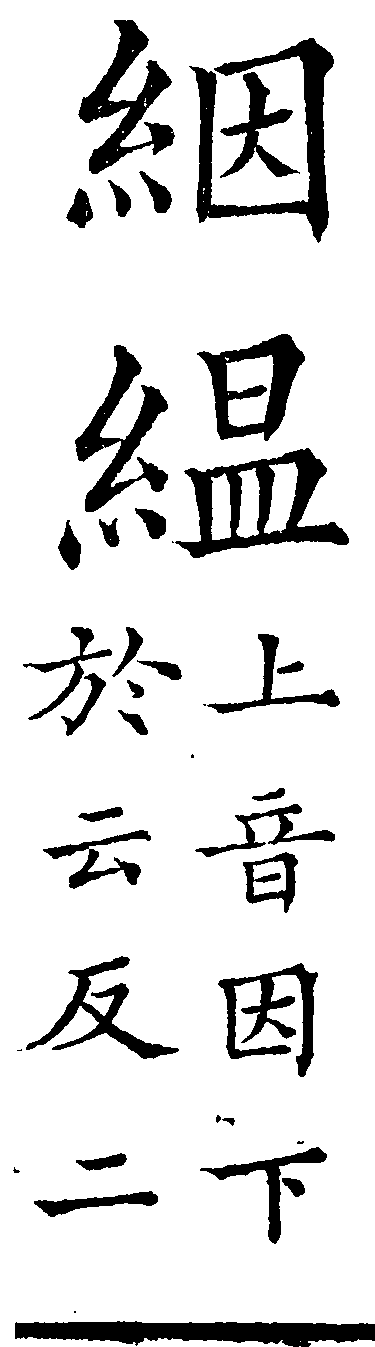 絪緼
上音因下
於云反二